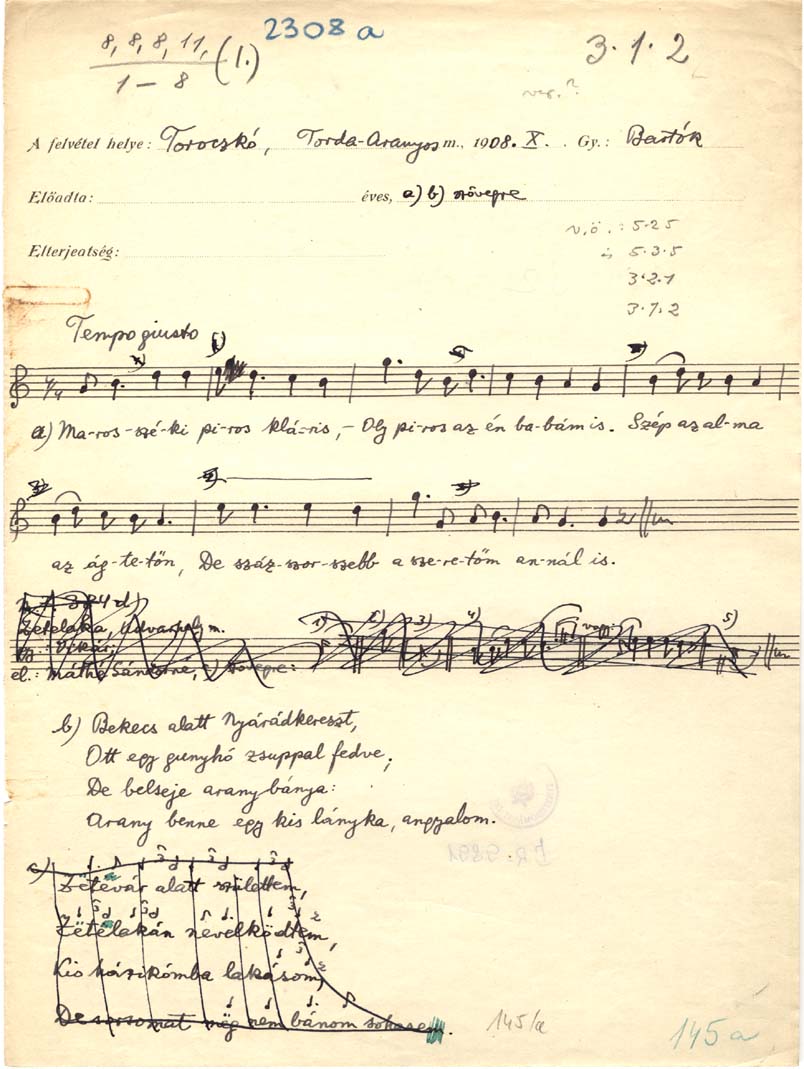 2308 a
8, 8, 8, 11, (1.)
1 – 8
3·1·2
A felvétel helye: Toroczkó, Torda-Aranyos m., 1908. X. Gy.: Bartók
Előadta: éves, a) b) szövegre
v.ö.: 5·2·5
5·3·5
Elterjedtség:
3·2·1
3·1·2
Tempo giusto
a) Ma-ros-szé-ki pi-ros klá-ris, – Oly pi-ros az én ba-bám is. Szép az al-ma
az ág-te-tőn, De száz-szor-szebb a sze-re-tőm an-nál is.
Zetelaka, Udvarhely m.
gy.: Vikár,
el.: Máthé Sándorné, c) szövegre:
1) 2) 3) 4) vagy: 5)
b) Bekecs alatt Nyárádkereszt,
Ott egy gunyhó zsuppal fedve;
De belseje aranybánya:
Arany benne egy kis lányka, angyalom.
c) Zetevár alatt születtem,
Zetelakán nevelködtem,
Kis házikómba lakásom,
De sorsomat még nem bánom sohasem.
145/a
145 a